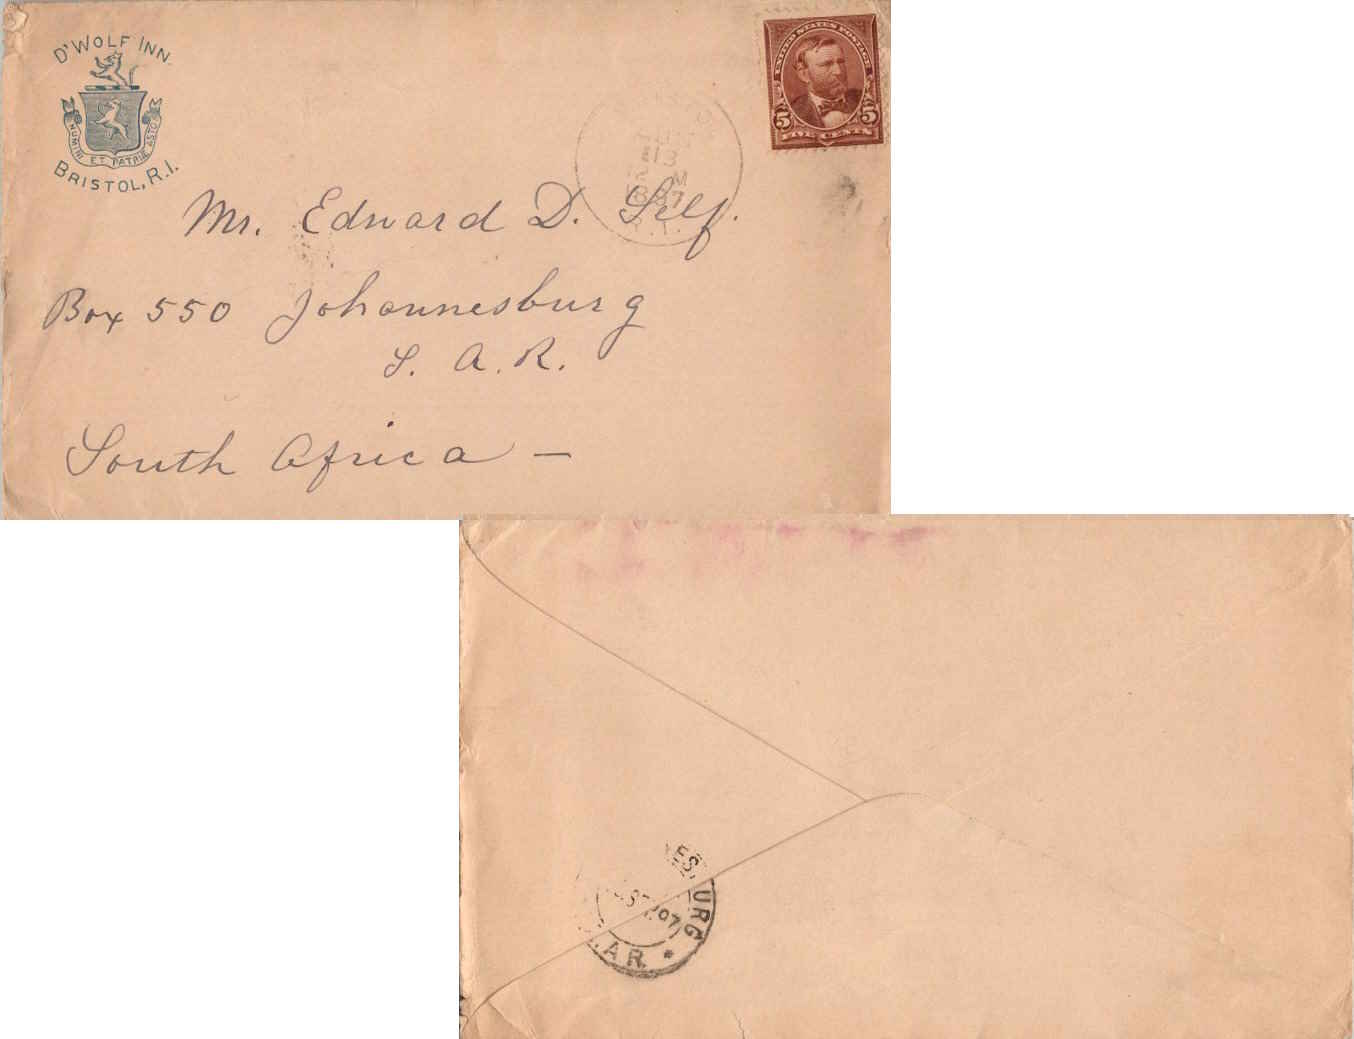 D'WOLF INN.
NUMINI ET PATRIAE ASTO
BRISTOL, R.I.
UNITED STATES POSTAGE
5 5
FIVE CENTS
13
M
R.I.
Mr. Edward D. Self.
Box 550 Johannesburg
S. A. R.
South Africa —
ESBURG
97
.A.R. *